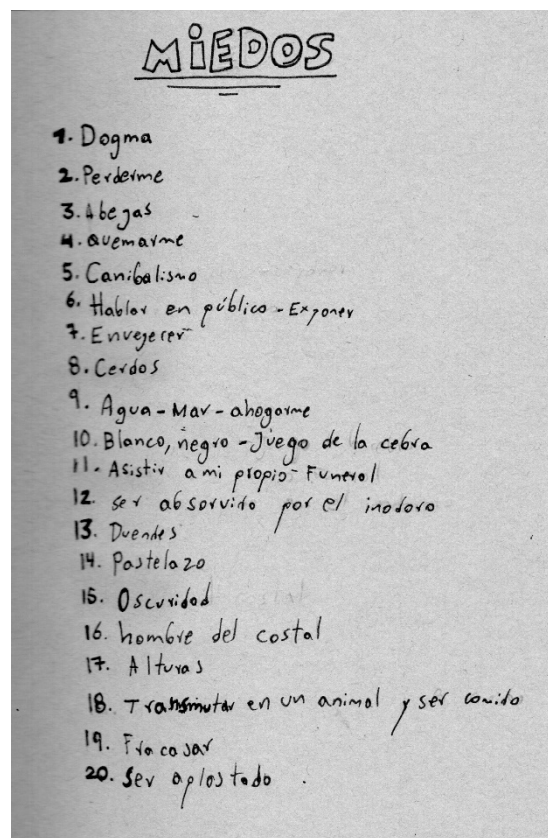 MiEDOS
1. Dogma
2. Perderme
3. Abejas
4. Quemarme
5. Canibalismo
6. Hablar en público - Exponer
7. Envejecer
8. Cerdos
9. Agua - Mar - ahogarme
10. Blanco, negro - Juego de la cebra
11. Asistir a mi propio - Funeral
12. ser absorvido por el inodoro
13. Duendes
14. Pastelazo
15. Oscuridad
16. hombre del costal
17. Alturas
18. Transmutar en un animal y ser comido
19. Fracasar
20. Ser aplastado.